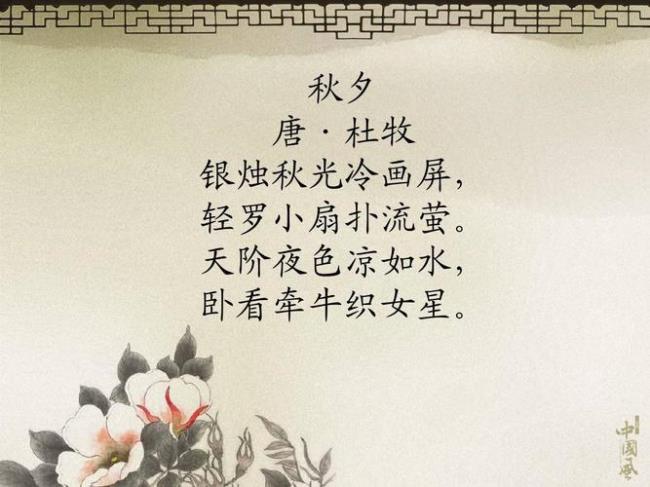 秋夕
唐·杜牧
银烛秋光冷画屏，
轻罗小扇扑流萤。
天阶夜色凉如水，
卧看牵牛织女星。
中国风